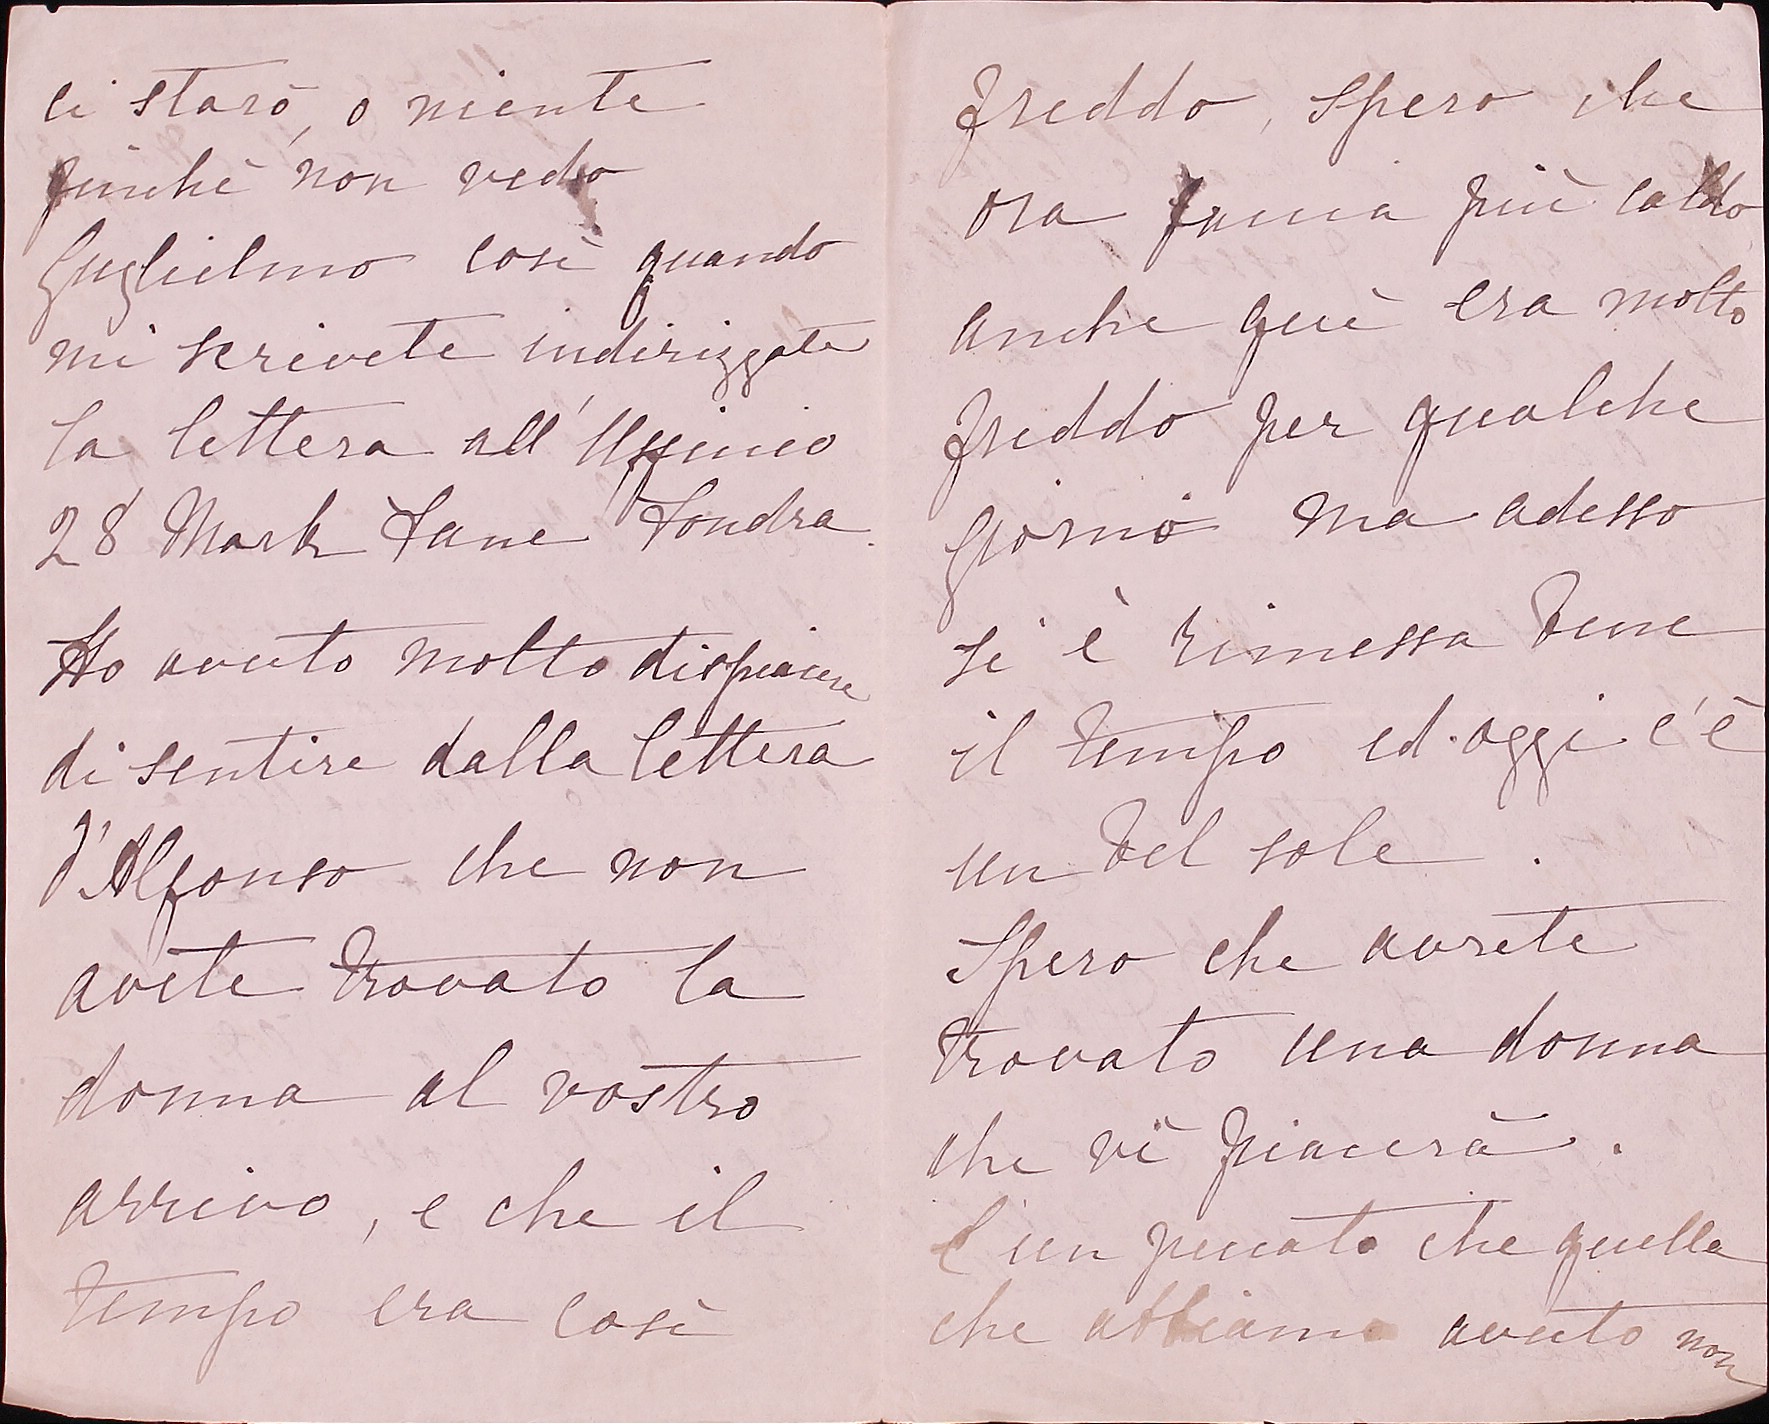 ci starò, o niente
finchè non vedo
Guglielmo così quando
mi scrivete indirizzate
la lettera all'Ufficio
28 Mark Lane Londra.
Ho avuto molto dispiacere
di sentire dalla lettera
d'Alfonso che non
avete trovato la
donna al vostro
arrivo, e che il
tempo era così
freddo, spero che
ora faccia più caldo,
anche quì era molto
freddo per qualche
giorno ma adesso
si è rimessa bene
il tempo ed oggi c'è
un bel sole.
Spero che avrete
trovato una donna
che vi piacerà.
È un peccato che quella
che abbiamo avuto non